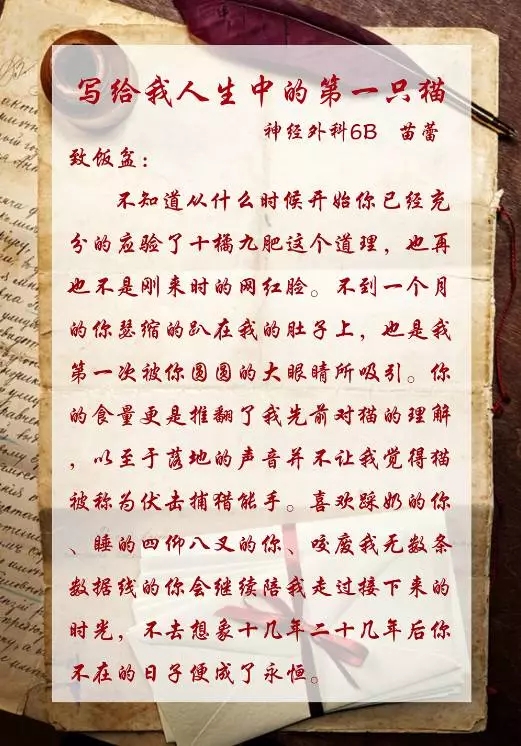 写给我人生中的第一只猫
神经外科6B 苗蕾
致饭盆：
不知道从什么时候开始你已经充
分的应验了十橘九肥这个道理，也再
也不是刚来时的网红脸。不到一个月
的你瑟缩的趴在我的肚子上，也是我
第一次被你圆圆的大眼睛所吸引。你
的食量更是推翻了我先前对猫的理解
，以至于落地的声音并不让我觉得猫
被称为伏击捕猎能手。喜欢踩奶的你
、睡的四仰八叉的你、咬废我无数条
数据线的你会继续陪我走过接下来的
时光，不去想象十几年二十几年后你
不在的日子便成了永恒。